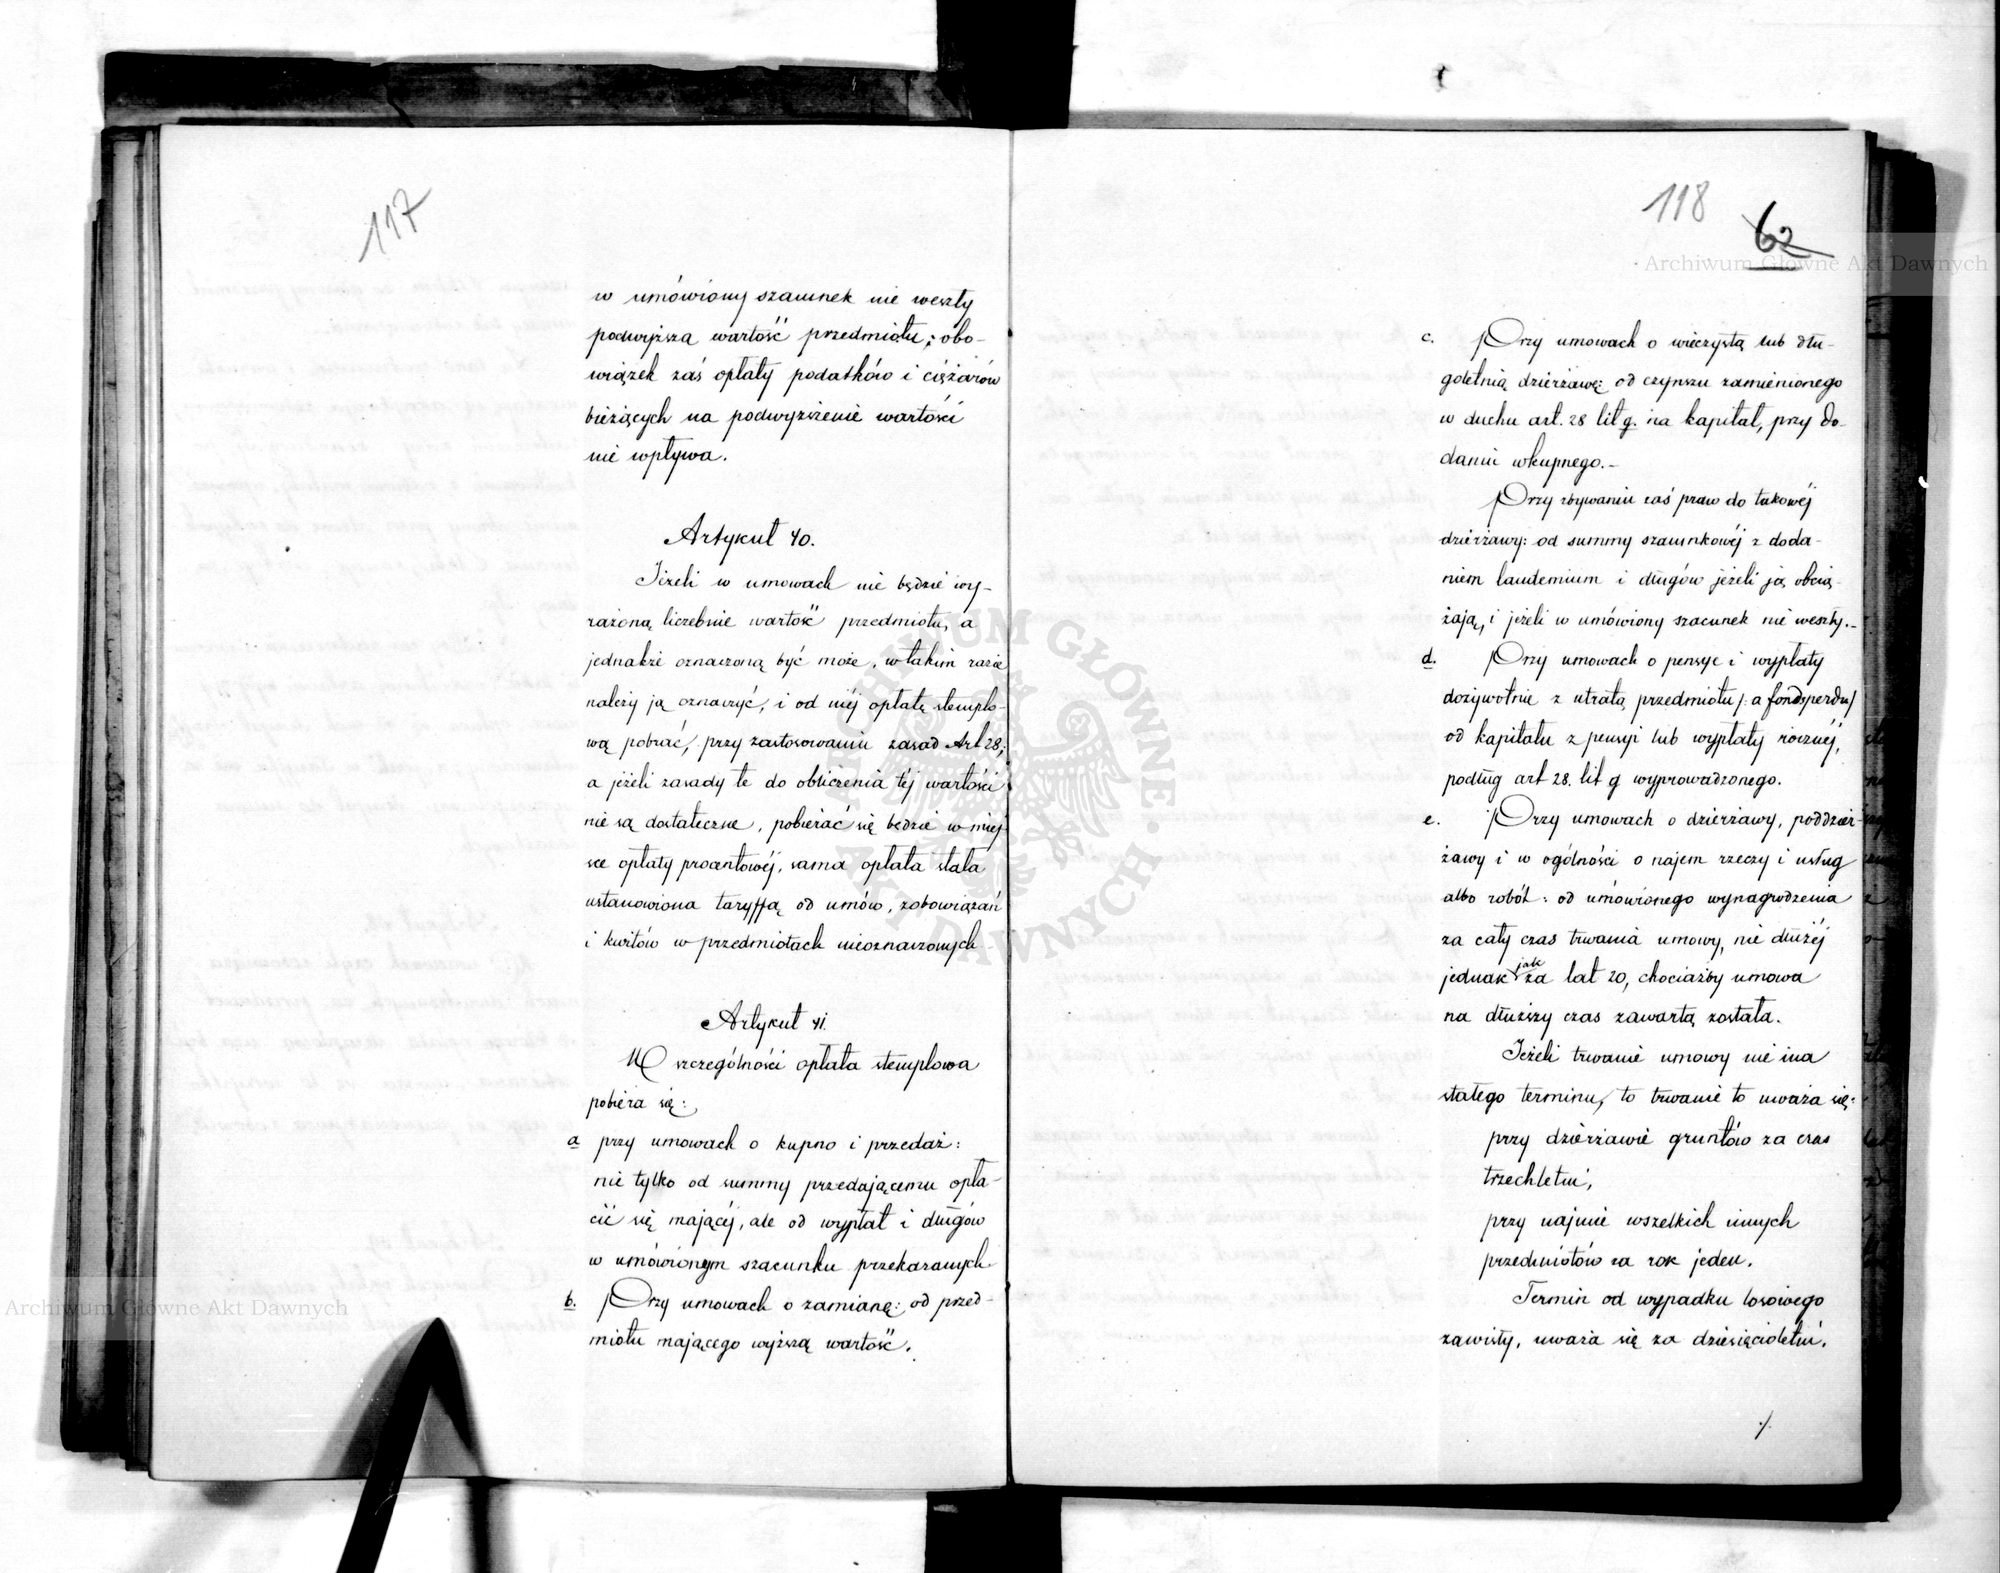 117
w umówiony szacunek nie weszły
podwyższa wartość przedmiotu; obo-
wiązek zaś opłaty podatków i ciężarów
bieżących na podwyższenie wartości
nie wpływa.
Artykuł 40.
Jeżeli w umowach nie będzie wy-
rażoną liczebnie wartość przedmiotu, a
jednakże oznaczoną być może, w takim razie
należy ją oznaczyć, i od niéj opłatę stemplo-
wą pobrać, przy zastosowaniu zasad Art 28;
a jeżeli zasady te do obliczenia téj wartości
nie są dostateczne, pobierać się będzie w miej-
sce opłaty procentowéj, sama opłata stała
ustanowiona taryffą od umów, zobowiązań
i kwitów w przedmiotach nieoznaczonych.
Artykuł 41.
W szczególności opłata stemplowa
pobiera się:
a przy umowach o kupno i przedaż:
nie tylko od summy przedającemu opła-
cić się mającéj, ale od wypłat i długów
w umówionym szacunku przekazanych.
b. Przy umowach o zamianę: od przed-
miotu mającego wyższą wartość.
118
62
c. Przy umowach o wieczystą lub dłu-
goletnią dzierżawę: od czynszu zamienionego
w duchu art. 28 lit g. na kapitał, przy do-
daniu wkupnego.-
Przy zbywaniu zaś praw do takowéj
dzierżawy: od summy szacunkowéj z doda-
niem laudemium i długów jeżeli ją obcią-
żają, i jeżeli w umówiony szacunek nie weszły.-
d. Przy umowach o pensye i wypłaty
dożywotnie z utratą przedmiotu /: a fondsperdu/
od kapitału z pensyi lub wypłaty rocznéj,
podług art 28. lit g wyprowadzonego.
e. Przy umowach o dzierżawy, poddzier-
żawy i w ogólności o najem rzeczy i usług
albo robót: od umówionego wynagrodzenia
za cały czas trwania umowy, nie dłużéj
jednak jak za lat 20, chociażby umowa
na dłuższy czas zawartą została.
Jeżeli trwanie umowy nie ma
stałego terminu, to trwanie to uważa się:
przy dzierżawie gruntów za czas
trzechletni,
przy najmie wszelkich innych
przedmiotów za rok jeden.
Termin od wypadku losowego
zawisły, uważa się za dziesięcioletni.
./.
Archiwum Główne Akt Dawnych
Archiwum Główne Akt Dawnych
ARCHIWUM GŁÓWNE AKT DAWNYCH